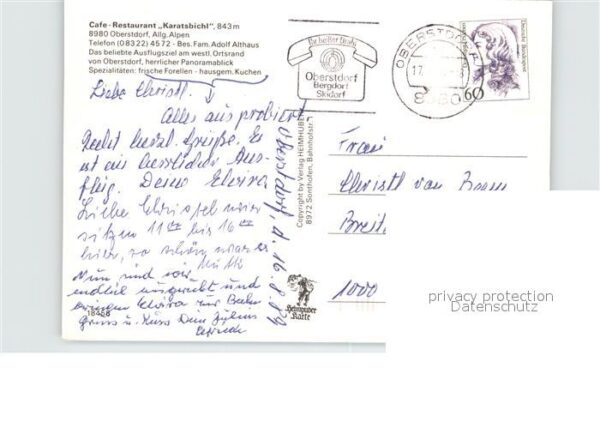 Cafe-Restaurant „Karatsbichl", 843 m
8980 Oberstdorf, Allg. Alpen
Telefon (08322) 4572 - Bes. Fam. Adolf Althaus
Das beliebte Ausflugsziel am westl. Ortsrand
von Oberstdorf, herrlicher Panoramablick
Spezialitäten: frische Forellen - hausgem. Kuchen
Liebe Christl.
Alles ausprobiert
Recht herzl. Grüße. Es
ist ein herrlicher Aus-
flug. Deine Elvira
Liebe Christel wir
sitzen 11 bis 16
hier, so schön war es
Nun sind wir
endlich ausgeruht und
Elvira zur Bahn
Gruss u. Kuss Dein
18458
Oberstdorf, d. 16.8.89
Copyright by Verlag HEIMHUBER
8972 Sonthofen, Bahnhofstr. 1
Heimhuber
Karte
Oberstdorf
Bergdorf
Skidorf
OBERSTDORF
17
8980
Deutsche Bundespost
60
Frau
Christl van
Breit
1000
privacy protection
Datenschutz